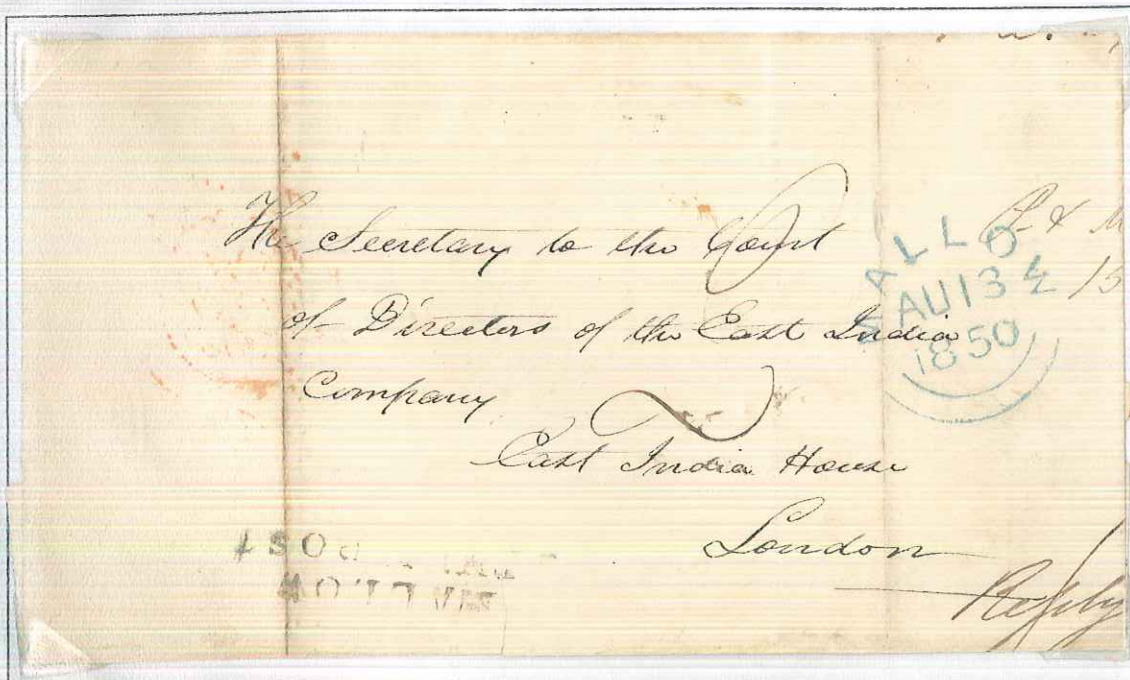 The Secretary to the Court
of Directors of the East India
Company
East India House
London
Reply
MALLOW
AU 13
1850
POST
MALLOW